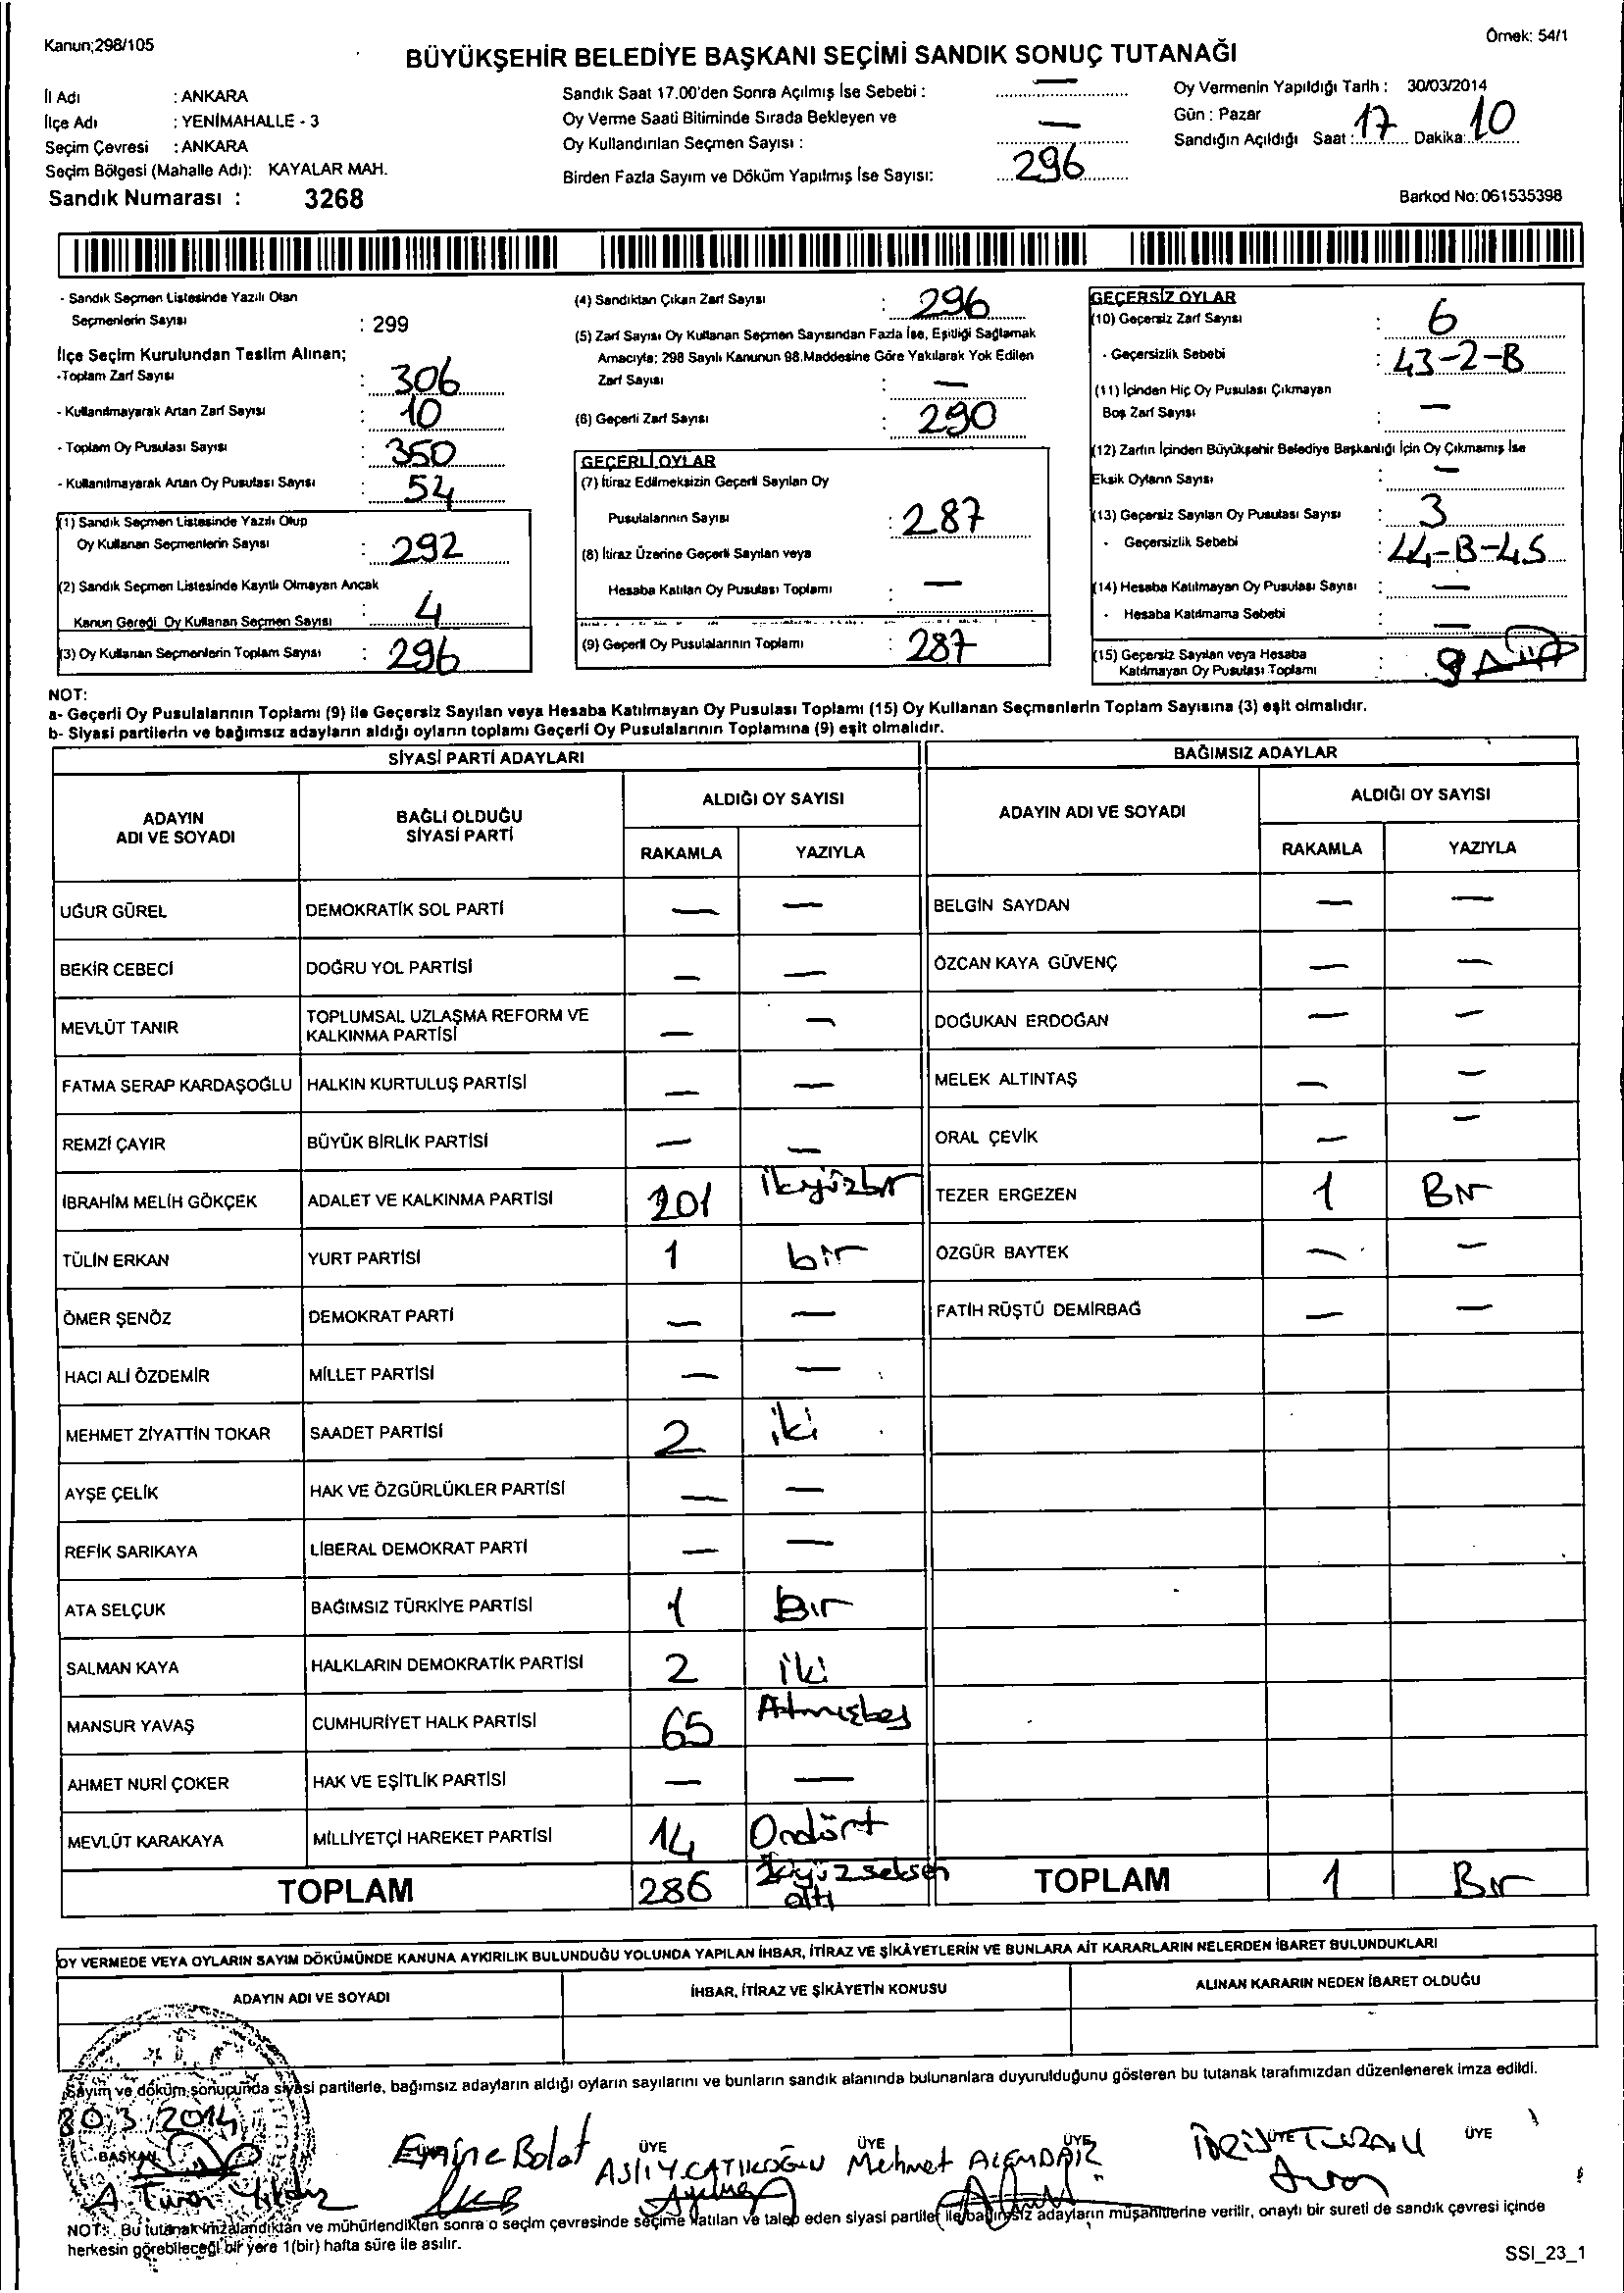 Kanun;298/105
Örnek: 54/1
BÜYÜKŞEHİR BELEDİYE BAŞKANI SEÇİMİ SANDIK SONUÇ TUTANAĞI
İl Adı : ANKARA
İlçe Adı : YENİMAHALLE - 3
Seçim Çevresi : ANKARA
Seçim Bölgesi (Mahalle Adı): KAYALAR MAH.
Sandık Numarası : 3268
Sandık Saat 17.00'den Sonra Açılmış İse Sebebi : —
Oy Verme Saati Bitiminde Sırada Bekleyen ve
Oy Kullandırılan Seçmen Sayısı : —
Birden Fazla Sayım ve Döküm Yapılmış İse Sayısı: 296
Oy Vermenin Yapıldığı Tarih : 30/03/2014
Gün : Pazar
Sandığın Açıldığı Saat : 17 Dakika: 10
Barkod No: 061535398
- Sandık Seçmen Listesinde Yazılı Olan
Seçmenlerin Sayısı : 299
İlçe Seçim Kurulundan Teslim Alınan;
-Toplam Zarf Sayısı : 306
- Kullanılmayarak Artan Zarf Sayısı : 10
- Toplam Oy Pusulası Sayısı : 350
- Kullanılmayarak Artan Oy Pusulası Sayısı : 54
(1) Sandık Seçmen Listesinde Yazılı Olup
Oy Kullanan Seçmenlerin Sayısı : 292
(2) Sandık Seçmen Listesinde Kayıtlı Olmayan Ancak
Kanun Gereği Oy Kullanan Seçmen Sayısı : 4
(3) Oy Kullanan Seçmenlerin Toplam Sayısı : 296
(4) Sandıktan Çıkan Zarf Sayısı : 296
(5) Zarf Sayısı Oy Kullanan Seçmen Sayısından Fazla İse, Eşitliği Sağlamak
Amacıyla; 298 Sayılı Kanunun 98.Maddesine Göre Yakılarak Yok Edilen
Zarf Sayısı : —
(6) Geçerli Zarf Sayısı : 290
GEÇERLİ OYLAR
(7) İtiraz Edilmeksizin Geçerli Sayılan Oy
Pusulalarının Sayısı : 287
(8) İtiraz Üzerine Geçerli Sayılan veya
Hesaba Katılan Oy Pusulası Toplamı : —
(9) Geçerli Oy Pusulalarının Toplamı : 287
GEÇERSİZ OYLAR
(10) Geçersiz Zarf Sayısı : 6
- Geçersizlik Sebebi : 43-2-B
(11) İçinden Hiç Oy Pusulası Çıkmayan
Boş Zarf Sayısı : —
(12) Zarfın İçinden Büyükşehir Belediye Başkanlığı İçin Oy Çıkmamış İse
Eksik Oyların Sayısı : —
(13) Geçersiz Sayılan Oy Pusulası Sayısı : 3
- Geçersizlik Sebebi : 44-B-45
(14) Hesaba Katılmayan Oy Pusulası Sayısı : —
- Hesaba Katılmama Sebebi : —
(15) Geçersiz Sayılan veya Hesaba
Katılmayan Oy Pusulası Toplamı : 9
NOT:
a- Geçerli Oy Pusulalarının Toplamı (9) ile Geçersiz Sayılan veya Hesaba Katılmayan Oy Pusulası Toplamı (15) Oy Kullanan Seçmenlerin Toplam Sayısına (3) eşit olmalıdır.
b- Siyasi partilerin ve bağımsız adayların aldığı oyların toplamı Geçerli Oy Pusulalarının Toplamına (9) eşit olmalıdır.
SİYASİ PARTİ ADAYLARI
ADAYIN ADI VE SOYADI BAĞLI OLDUĞU SİYASİ PARTİ ALDIĞI OY SAYISI RAKAMLA YAZIYLA
UĞUR GÜREL DEMOKRATİK SOL PARTİ — —
BEKİR CEBECİ DOĞRU YOL PARTİSİ — —
MEVLÜT TANIR TOPLUMSAL UZLAŞMA REFORM VE KALKINMA PARTİSİ — —
FATMA SERAP KARDAŞOĞLU HALKIN KURTULUŞ PARTİSİ — —
REMZİ ÇAYIR BÜYÜK BİRLİK PARTİSİ — —
İBRAHİM MELİH GÖKÇEK ADALET VE KALKINMA PARTİSİ 201 ikiyüzbir
TÜLİN ERKAN YURT PARTİSİ 1 bir
ÖMER ŞENÖZ DEMOKRAT PARTİ — —
HACI ALİ ÖZDEMİR MİLLET PARTİSİ — —
MEHMET ZİYATTİN TOKAR SAADET PARTİSİ 2 iki
AYŞE ÇELİK HAK VE ÖZGÜRLÜKLER PARTİSİ — —
REFİK SARIKAYA LİBERAL DEMOKRAT PARTİ — —
ATA SELÇUK BAĞIMSIZ TÜRKİYE PARTİSİ 1 Bır
SALMAN KAYA HALKLARIN DEMOKRATİK PARTİSİ 2 iki
MANSUR YAVAŞ CUMHURİYET HALK PARTİSİ 65 Atmışbeş
AHMET NURİ ÇOKER HAK VE EŞİTLİK PARTİSİ — —
MEVLÜT KARAKAYA MİLLİYETÇİ HAREKET PARTİSİ 14 Ondört
TOPLAM 286 İkiyüzseksen altı
BAĞIMSIZ ADAYLAR
ADAYIN ADI VE SOYADI ALDIĞI OY SAYISI RAKAMLA YAZIYLA
BELGİN SAYDAN — —
ÖZCAN KAYA GÜVENÇ — —
DOĞUKAN ERDOĞAN — —
MELEK ALTINTAŞ — —
ORAL ÇEVİK — —
TEZER ERGEZEN 1 Bır
ÖZGÜR BAYTEK — —
FATİH RÜŞTÜ DEMİRBAĞ — —
TOPLAM 1 Bır
OY VERMEDE VEYA OYLARIN SAYIM DÖKÜMÜNDE KANUNA AYKIRILIK BULUNDUĞU YOLUNDA YAPILAN İHBAR, İTİRAZ VE ŞİKÂYETLERİN VE BUNLARA AİT KARARLARIN NELERDEN İBARET BULUNDUKLARI
ADAYIN ADI VE SOYADI İHBAR, İTİRAZ VE ŞİKÂYETİN KONUSU ALINAN KARARIN NEDEN İBARET OLDUĞU
Sayım ve döküm sonucunda siyasi partilerle, bağımsız adayların aldığı oyların sayılarını ve bunların sandık alanında bulunanlara duyurulduğunu gösteren bu tutanak tarafımızdan düzenlenerek imza edildi.
30.3.2014
BAŞKAN ÜYE ÜYE ÜYE ÜYE ÜYE
A. Turan Yıldız Emine Bolat Mehmet İDRİS TURAN
NOT: Bu tutanak imzalandıktan ve mühürlendikten sonra o seçim çevresinde seçime katılan ve talep eden siyasi partiler ile bağımsız adayların müşahitlerine verilir, onaylı bir sureti de sandık çevresi içinde
herkesin görebileceği bir yere 1(bir) hafta süre ile asılır.
SSI_23_1